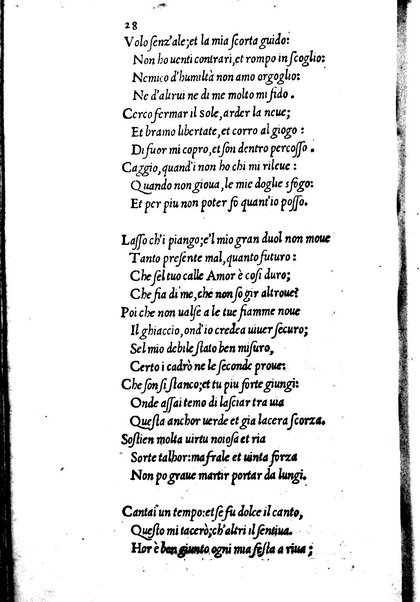 28
Volo senz'ale; et la mia scorta guido:
Non ho uenti contrari, et rompo in scoglio:
Nemico d'humiltà non amo orgoglio:
Ne d'altrui ne di me molto mi fido.
Cerco fermar il sole, arder la neue;
Et bramo libertate, et corro al giogo:
Di fuor mi copro, et son dentro percosso.
Caggio, quand'i non ho chi mi rileue:
Quando non gioua, le mie doglie sfogo:
Et per piu non poter fo quant'io posso.
Lasso ch'i piango; e'l mio gran duol non moue
Tanto presente mal, quanto futuro:
Che se'l tuo calle Amor è cosi duro;
Che fia di me, che non so gir altroue?
Poi che non ualse a le tue fiamme noue
Il ghiaccio, ond'io credea uiuer securo;
Se'l mio debile stato ben misuro,
Certo i cadrò ne le seconde proue:
Che son si stanco; et tu piu forte giungi:
Onde assai temo di lasciar tra uia
Questa anchor uerde et gia lacera scorza.
Sostien molta uirtu noiosa et ria
Sorte talhor: ma frale et uinta forza
Non po graue martir portar da lungi.
Cantai un tempo: et se fu dolce il canto,
Questo mi tacerò; ch'altri il sentiua.
Hor è ben giunto ogni mia festa a riua;